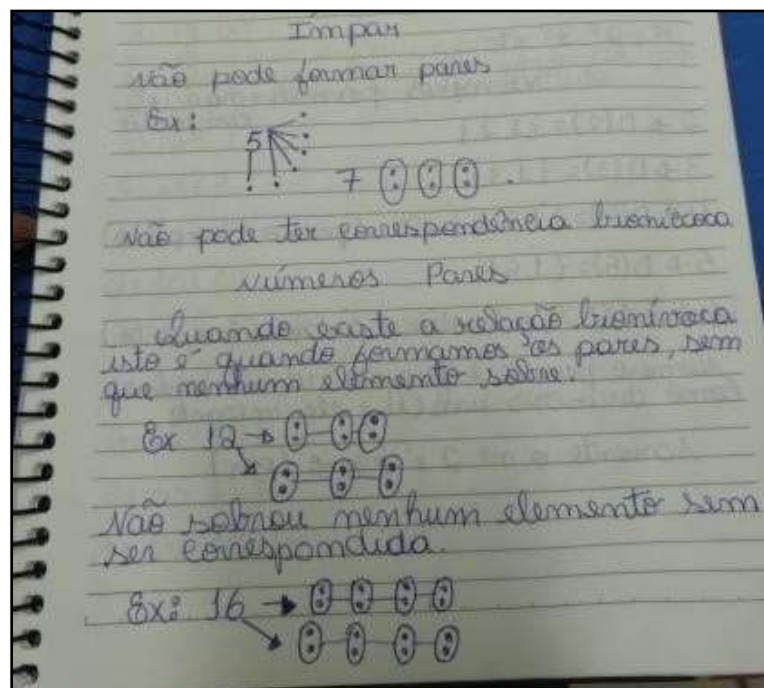 Ímpar
não pode formar pares
Ex:
5
7
não pode ter correspondência biunívoca
números Pares
Quando existe a relação biunívoca
isto é quando formamos os pares, sem
que nenhum elemento sobre.
Ex 12
Não sobrou nenhum elemento sem
ser correspondida.
Ex: 16